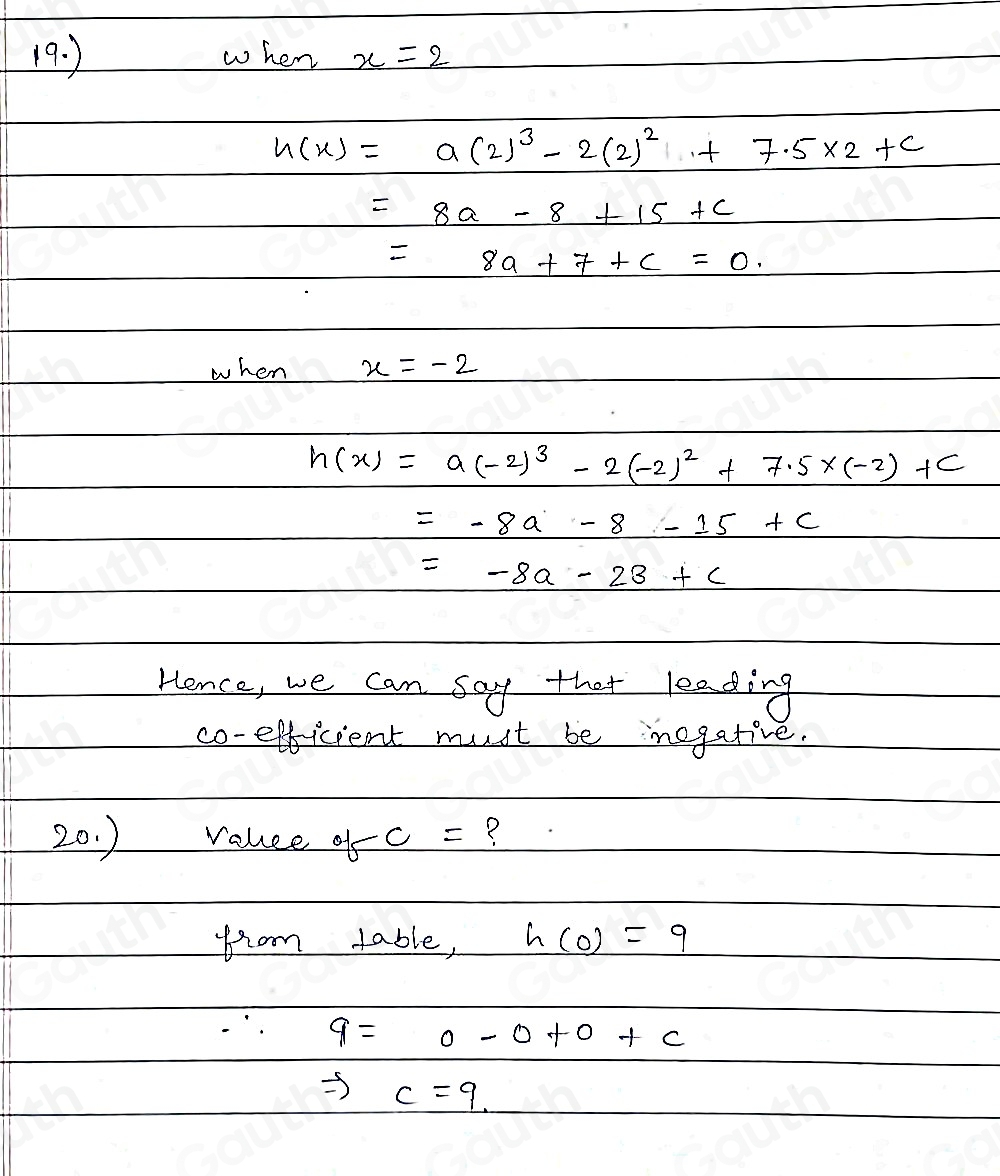 19.) when x = 2
h(x) = a(2)³ - 2(2)² + 7.5×2 + c
= 8a - 8 + 15 + c
= 8a + 7 + c = 0.
when x = -2
h(x) = a(-2)³ - 2(-2)² + 7.5×(-2) + c
= -8a - 8 - 15 + c
= -8a - 23 + c
Hence, we can say that leading
co-efficient must be negative.
20.) Value of c = ?
from table, h(0) = 9
∴ 9 = 0 - 0 + 0 + c
⇒ c = 9.